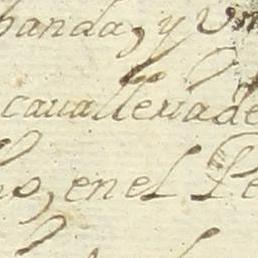 banda, y Vn
caualleria de
ho, en el Pe